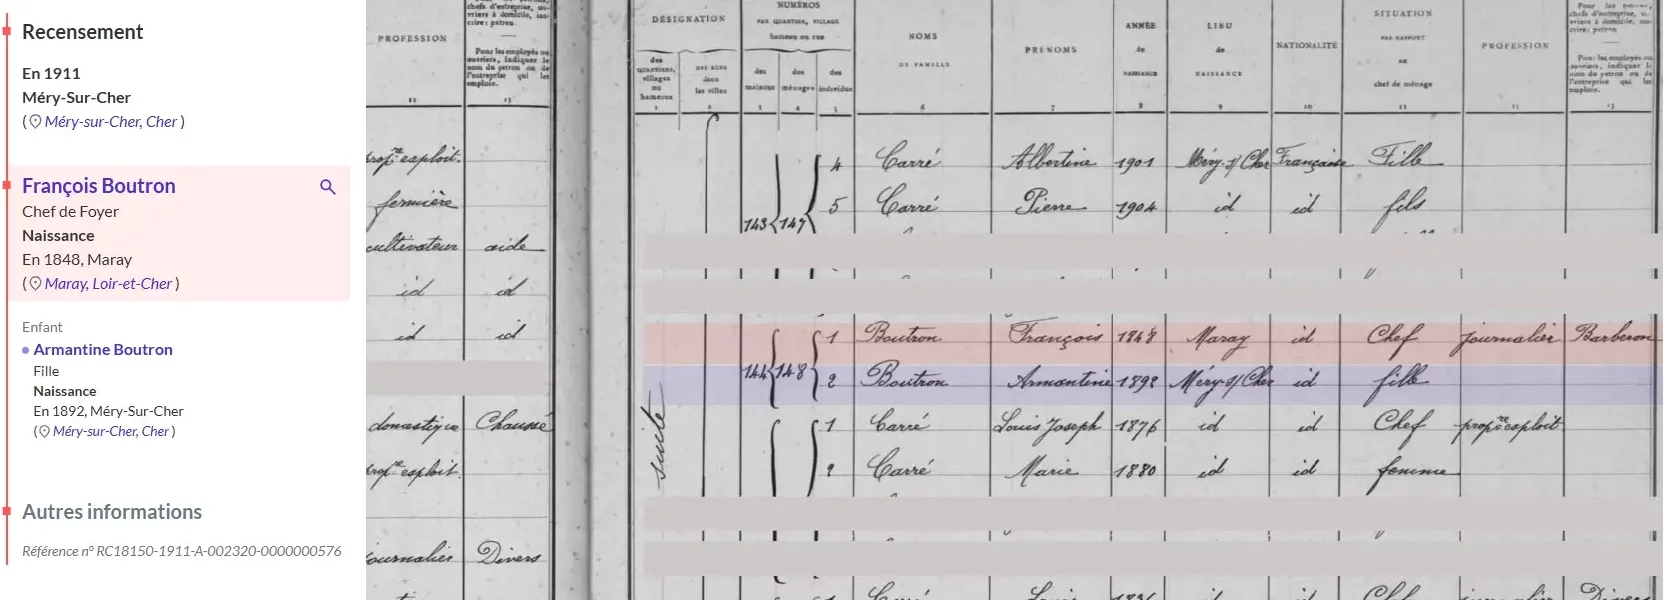 Recensement
En 1911
Méry-Sur-Cher
( Méry-sur-Cher, Cher )
François Boutron
Chef de Foyer
Naissance
En 1848, Maray
( Maray, Loir-et-Cher )
Enfant
Armantine Boutron
Fille
Naissance
En 1892, Méry-Sur-Cher
( Méry-sur-Cher, Cher )
Autres informations
Référence n° RC18150-1911-A-002320-0000000576
PROFESSION
12
chefs d'entreprise, ou-
vriers à domicile, ins-
crire : patron
Pour les employés ou
ouvriers, indiquer le
nom du patron ou de
l'entreprise qui les
emploie.
13
propre exploit.
fermière
cultivateur aide
id id
id id
domestique Chaussé
propre exploit.
journalier Divers
DÉSIGNATION
des
QUARTIERS,
villages
ou
hameaux
1
DES RUES
dans
les villes
2
NUMÉROS
PAR QUARTIER, VILLAGE
hameau ou rue
des
maisons
3
des
ménages
4
des
individus
5
NOMS
DE FAMILLE
6
PRÉNOMS
7
ANNÉE
de
NAISSANCE
8
LIEU
de
NAISSANCE
9
NATIONALITÉ
10
SITUATION
PAR RAPPORT
au
chef de ménage
11
PROFESSION
12
chefs d'entreprise, ou-
vriers à domicile, ins-
crire : patron
Pour les employés ou
ouvriers, indiquer le
nom du patron ou de
l'entreprise qui les
emploie.
13
4 Carré Albertine 1901 Méry-s/Cher Française Fille
143 147 5 Carré Pierre 1904 id id fils
1 Boutron François 1848 Maray id Chef journalier Barberon
144 148 2 Boutron Armantine 1892 Méry-s/Cher id fille
suite
1 Carré Louis Joseph 1876 id id Chef propre exploit
2 Carré Marie 1880 id id femme